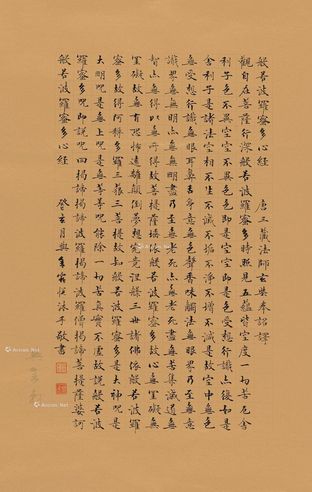 般若波羅蜜多心経 唐三藏法師玄奘奉詔譯
觀自在菩薩行深般若波羅蜜多時照見五蘊皆空度一切苦厄舍
利子色不異空空不異色色即是空空即是色受想行識亦復如是
舍利子是諸法空相不生不滅不垢不淨不增不減是故空中無色
無受想行識無眼耳鼻舌身意無色聲香味觸法無眼界乃至無意
識界無無明亦無無明盡乃至無老死亦無老死盡無苦集滅道無
智亦無得以無所得故菩提薩埵依般若波羅蜜多故心無罣礙無
罣礙故無有恐怖遠離顛倒夢想究竟涅槃三世諸佛依般若波羅
蜜多故得阿耨多羅三藐三菩提故知般若波羅蜜多是大神呪是
大明呪是無上呪是無等等呪能除一切苦真實不虛故說般若波
羅蜜多呪即說呪曰揭諦揭諦波羅揭諦波羅僧揭諦菩提薩婆訶
般若波羅蜜多心経 癸亥月 沐手敬書
Artron.Net